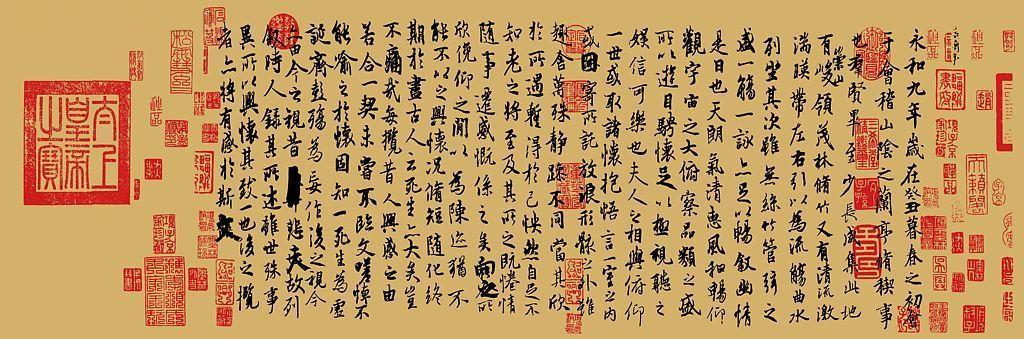 永和九年歲在癸丑暮春之初會
于會稽山陰之蘭亭脩稧事
也羣賢畢至少長咸集此地
有崇山峻領茂林脩竹又有清流激
湍暎帶左右引以為流觴曲水
列坐其次雖無絲竹管弦之
盛一觴一詠亦足以暢叙幽情
是日也天朗氣清惠風和暢仰
觀宇宙之大俯察品類之盛
所以遊目騁懷足以極視聽之
娛信可樂也夫人之相與俯仰
一世或取諸懷抱悟言一室之內
或因寄所託放浪形骸之外雖
趣舍萬殊静躁不同當其欣
於所遇蹔得於己怏然自足不
知老之將至及其所之既惓情
隨事遷感慨係之矣向之所
欣俛仰之閒以為陳迹猶不
能不以之興懷況脩短隨化終
期於盡古人云死生亦大矣豈
不痛哉每攬昔人興感之由
若合一契未嘗不臨文嗟悼不
能喻之於懷固知一死生為虛
誕齊彭殤為妄作後之視今
亦由今之視昔悲夫故列
叙時人錄其所述雖世殊事
異所以興懷其致一也後之攬
者亦將有感於斯文
太上皇帝之寶